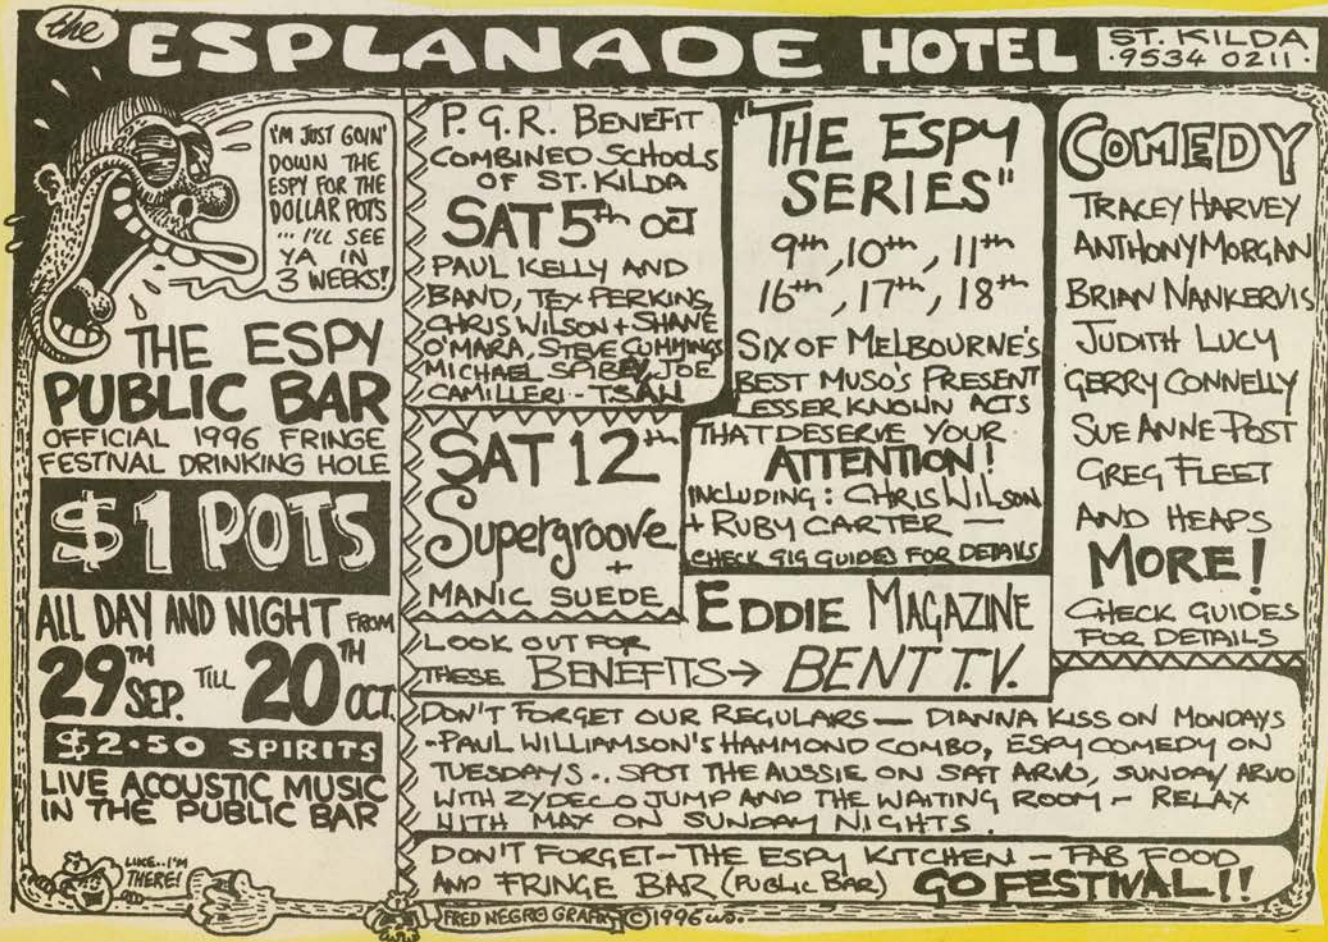 the ESPLANADE HOTEL
ST. KILDA
·9534 0211·
I'M JUST GOIN'
DOWN THE
ESPY FOR THE
DOLLAR POTS
... I'LL SEE
YA IN
3 WEEKS!
THE ESPY
PUBLIC BAR
OFFICIAL 1996 FRINGE
FESTIVAL DRINKING HOLE
$1 POTS
ALL DAY AND NIGHT FROM
29TH SEP. TILL 20TH OCT.
$2.50 SPIRITS
LIVE ACOUSTIC MUSIC
IN THE PUBLIC BAR
LIKE..I'M
THERE!
P.G.R. BENEFIT
COMBINED SCHOOLS
OF ST. KILDA
SAT 5th OCT
PAUL KELLY AND
BAND, TEX PERKINS,
CHRIS WILSON + SHANE
O'MARA, STEVE CUMMINGS
MICHAEL SPIBEY, JOE
CAMILLERI - T.S.A.W
SAT 12th
Supergroove
+
MANIC SUEDE
"THE ESPY
SERIES"
9th, 10th, 11th
16th, 17th, 18th
SIX OF MELBOURNE'S
BEST MUSO'S PRESENT
LESSER KNOWN ACTS
THAT DESERVE YOUR
ATTENTION!
INCLUDING: CHRIS WILSON
+ RUBY CARTER —
CHECK GIG GUIDES FOR DETAILS
COMEDY
TRACEY HARVEY
ANTHONY MORGAN
BRIAN NANKERVIS
JUDITH LUCY
GERRY CONNELLY
SUE ANNE POST
GREG FLEET
AND HEAPS
MORE!
CHECK GUIDES
FOR DETAILS
LOOK OUT FOR
THESE BENEFITS →
EDDIE MAGAZINE
BENT T.V.
DON'T FORGET OUR REGULARS — DIANNA KISS ON MONDAYS
-PAUL WILLIAMSON'S HAMMOND COMBO, ESPY COMEDY ON
TUESDAYS.. SPOT THE AUSSIE ON SAT ARVO, SUNDAY ARVO
WITH ZYDECO JUMP AND THE WAITING ROOM - RELAX
WITH MAX ON SUNDAY NIGHTS.
DON'T FORGET-THE ESPY KITCHEN - FAB FOOD
AND FRINGE BAR (PUBLIC BAR) GO FESTIVAL!!
FRED NEGRO GRAFIX © 1996